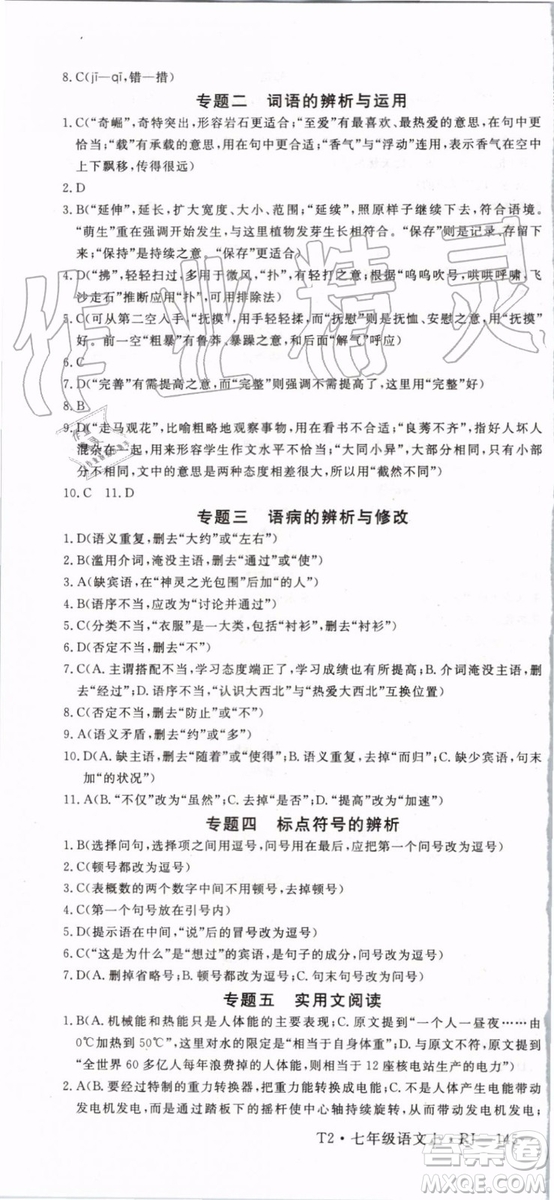 8. C(jī—qī,错—措)
专题二 词语的辨析与运用
1. C(“奇崛”,奇特突出,形容岩石更适合;“至爱”有最喜欢、最热爱的意思,在句中更恰当;“载”有承载的意思,在句中更恰当;“香气”与“浮动”连用,表示香气在空中上下飘移,传得很远)
2. D
3. B(“延伸”,延长,扩大宽度、大小、范围;“延续”,照原来样子继续下去,符合语境。“萌生”重在强调开始发生,而生长则指生物开始发芽生长。“保存”则是记录、存留之意;“保持”是持续之意,“保存”更适合)
4. D(“拂”,轻轻扫过,多用于微风,“扑”,有力量。根据“呜呜吹号,哄哄呼啸,飞沙走石”推断应用“扑”,可用排除法)
5. C(可从第二空入手,“抚摸”,用手轻轻揉,而“抚慰”则是抚恤、安慰之意,用“抚摸”好。前一空“粗暴”有鲁莽、暴躁之意,与后面“解气”呼应)
6. C
7. D(“完善”有需提高而提高之意,“完整”则没有需提高之意,用“完整”好)
8. B
9. D(“走马观花”,比喻粗略地观察事物,中性词,符合语境;“良莠不齐”,指好人坏人混杂在一起,用来形容学生作文水平不恰当;“大同小异”,大部分相同,小部分不相同,文中的意思是两种态度完全不同,所以用“截然不同”)
10. C 11. D
专题三 语病的辨析与修改
1. D(语义重复,删去“大约”或“左右”)
2. B(滥用介词,淹没主语,删去“通过”或“使”)
3. A(缺宾语,在“神灵之光包围”后加“的人”)
4. B(语序不当,应改为“讨论并通过”)
5. C(分类不当,“衣服”是一大类,包括“衬衫”,删去“衬衫”)
6. D(否定不当,删去“不”)
7. C(A. 主谓搭配不当,学习态度端正了,学习成绩也有所提高;B. 介词淹没主语,删去“经过”;D. 语序不当,“认识大西北”与“热爱大西北”互换)
8. C(否定不当,删去“防止”或“不”)
9. A(语义矛盾,删去“约”或“多”)
10. D(A. 缺主语,删去“随着”或“使得”;B. 语义重复,去掉“原因”;C. 缺少宾语,句末加“的状况”)
11. A(B. “不仅”改为“虽然”;C. 去掉“是否”;D. “提高”改为“加速”)
专题四 标点符号的辨析
1. B(选择问句,选择项之间用逗号,问号用在最后)
2. C(顿号都改为逗号)
3. C(表概数的两个数字中间不用顿号,删掉顿号)
4. C(第一个句号放在引号内)
5. D(提示语在中间,“说”后的冒号改为逗号)
6. C(“这是为什么”是“想过”的宾语,是句子的成分,问号改为逗号)
7. D(A. 删掉省略号;B. 顿号都改为逗号;C. 句末句号改为问号)
专题五 实用文阅读
1. B(A. 机械能和热能只是人体能的主要形式;C. 原文提到“一个人一昼夜……由0℃加热到50℃”,这里对水的限定是“相当于自身体重”;D. 原文提到“全世界60多亿人每年浪费掉的人体能,几乎相当于12座核电站生产的电力”)
2. A(B. 要经过特制的重力转换器,把重力能转换成电能;C. 不是直接带动发电机发电,而是通过踏板下的摇杆使中心轴持续旋转,从而带动发电机发电;
T2·七年级语文上·RJ—145
作业精灵